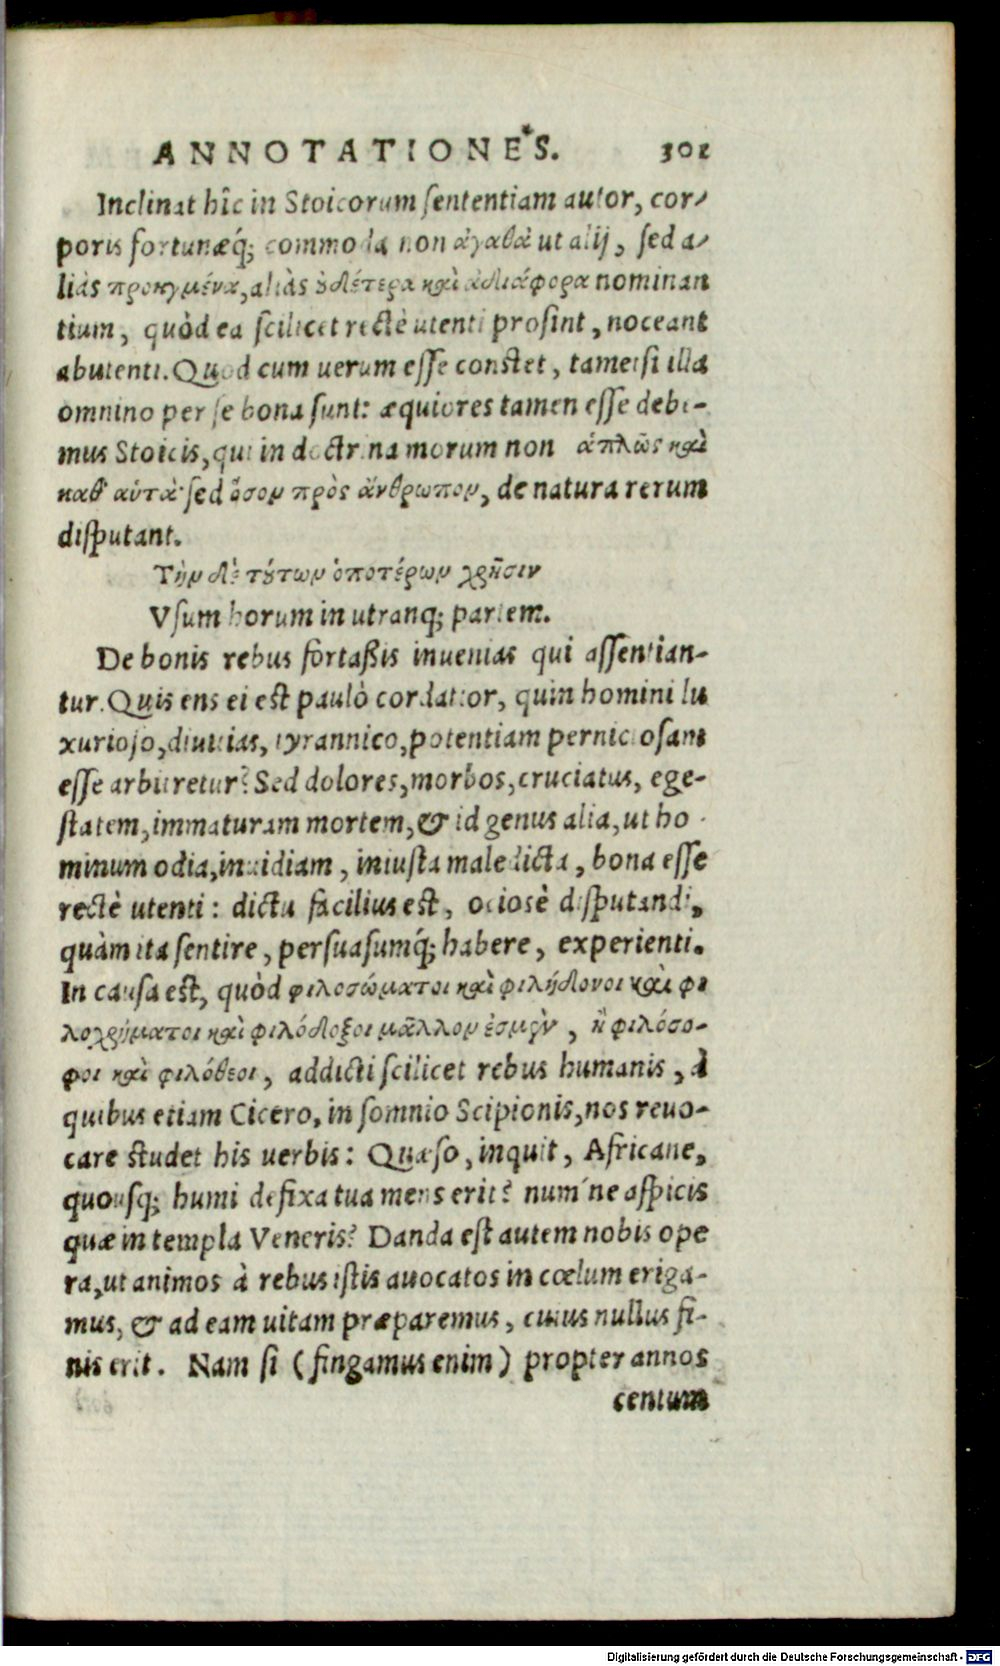 ANNOTATIONES. 301
Inclinat hîc in Stoicorum sententiam autor, cor-
poris fortunæq́; commoda non ἀγαθὰ ut alij, sed a-
liàs προηγμένα, aliàs ȣ̓δέτερα καὶ ἀδιάφορα nominan
tium, quòd ea scilicet rectè utenti prosint, noceant
abutenti. Quod cum uerum esse constet, tametsi illa
omnino per se bona sunt: æquiores tamen esse debe-
mus Stoicis, qui in doctrina morum non ἁπλῶς καὶ
καθ᾽ αὑτὰ· sed ὅσον πρὸς ἄνθρωπον, de natura rerum
disputant.
Τὴν δὲ τȣ́των ὁποτέρων χρῆσιν
Vsum horum in utranq; partem.
De bonis rebus fortaßis inuenias qui assentian-
tur. Quis ens ei est paulò cordatior, quin homini lu
xurioso, diuitias, tyrannico, potentiam perniciosam
esse arbitretur? Sed dolores, morbos, cruciatus, ege-
statem, immaturam mortem, & id genus alia, ut ho-
minum odia, inuidiam, iniusta maledicta, bona esse
rectè utenti: dictu facilius est, ociosè disputandi,
quàm ita sentire, persuasumq́; habere, experienti.
In causa est, quòd φιλοσώματοι καὶ φιλήδονοι καὶ φι
λοχρήματοι καὶ φιλόδοξοι μᾶλλον ἐσμὲν, ἢ φιλόσο-
φοι καὶ φιλόθεοι, addicti scilicet rebus humanis, à
quibus etiam Cicero, in somnio Scipionis, nos reuo-
care studet his uerbis: Quæso, inquit, Africane,
quousq; humi defixa tua mens erit? num´ne aspicis
quæ in templa Veneris? Danda est autem nobis ope
ra, ut animos à rebus istis auocatos in cœlum eriga-
mus, & ad eam uitam præparemus, cuius nullus fi-
nis erit. Nam si (fingamus enim) propter annos
centum
Digitalisierung gefördert durch die Deutsche Forschungsgemeinschaft - DFG